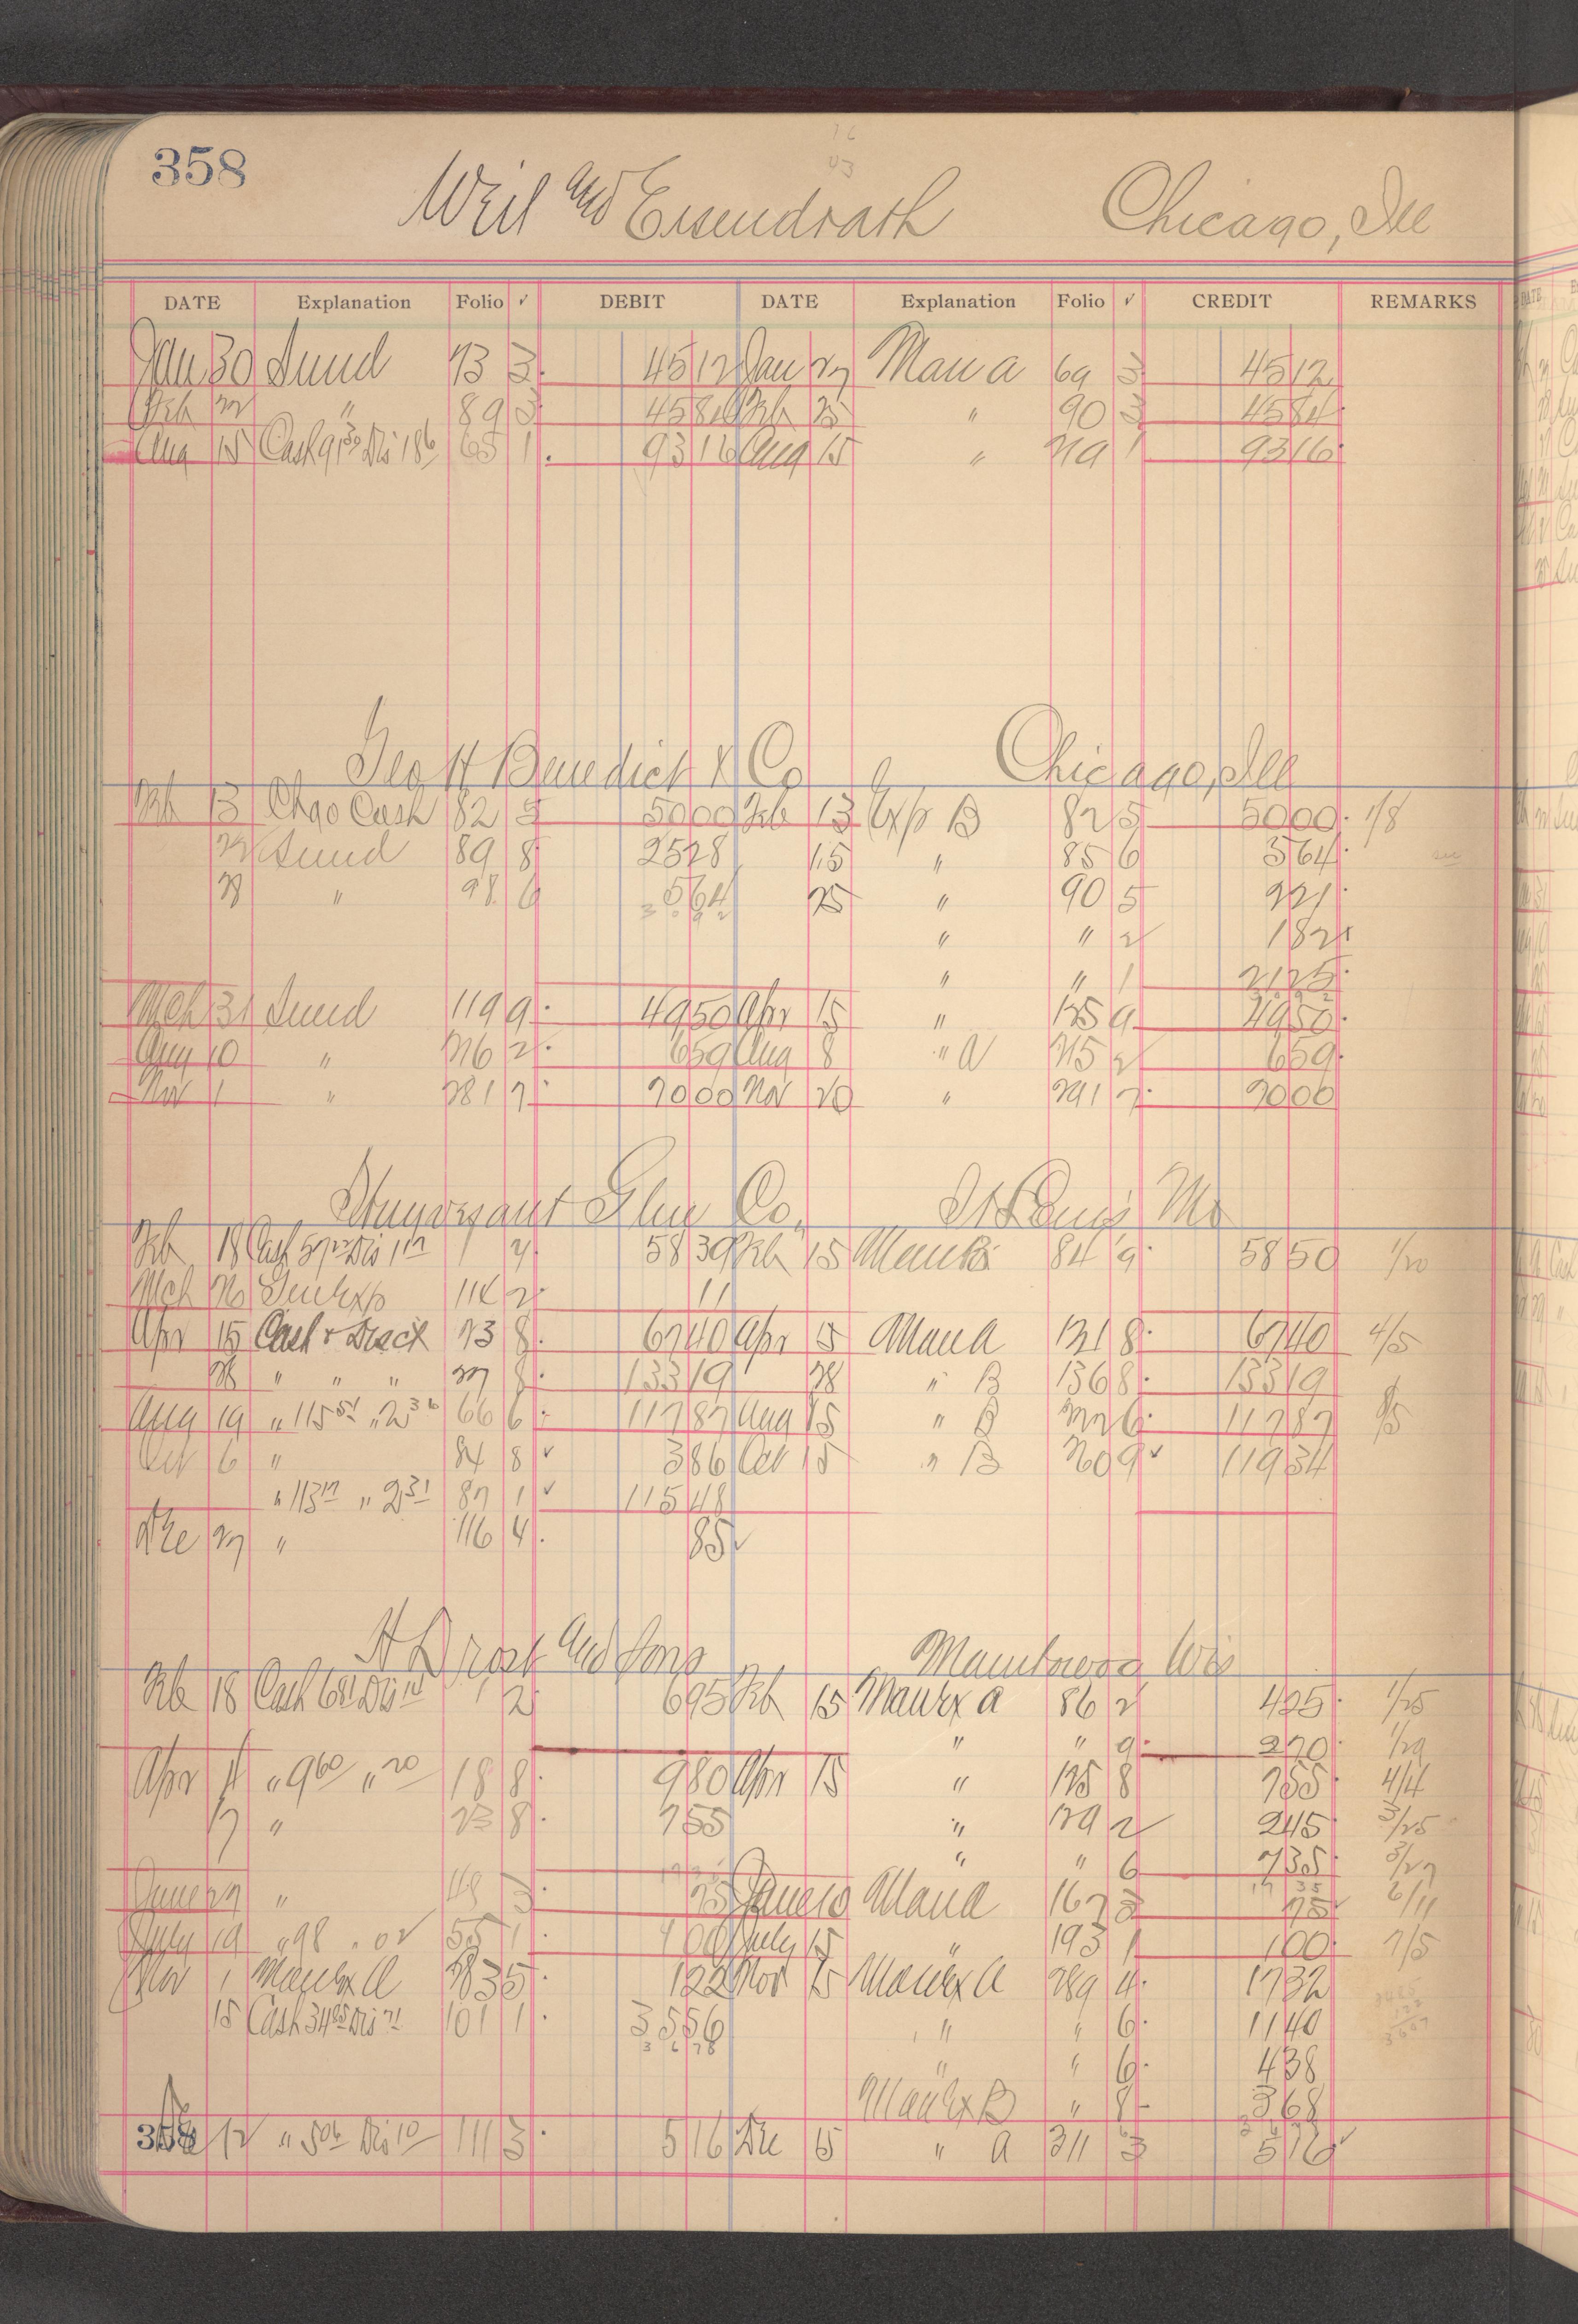 358
Weil and Eisendrath Chicago, Ill
DATE Explanation Folio ✓ DEBIT DATE Explanation Folio ✓ CREDIT REMARKS
Jan 30 Sund 73 3 45 12 Jan 27 Man a 69 3 45 12
Feb 22 " 89 3 45 84 Feb 25 " 90 3 45 84
Aug 15 Cash 91 30 Dis 1 86 65 1 93 16 Aug 15 " 219 1 93 16
Geo H Benedict & Co Chicago, Ill
Feb 13 Chgo Cash 82 5 50 00 Feb 13 Exp B 82 5 50 00 1/8
22 Sund 89 8 25 28 15 " 85 6 5 64
28 " 98 6 5 64 25 " 90 5 2 21
" " 2 1 82
" " 1 21 25
Mch 31 Sund 119 9 49 50 Apr 15 " 125 9 49 50
Aug 10 " 216 2 6 59 Aug 8 " A 215 2 6 59
Nov 1 " 281 7 20 00 Nov 20 " 291 7 20 00
Stuyvesant Glue Co. St Louis Mo
Feb 18 Cash 57 22 Dis 1 17 1 7 58 39 Feb 15 Man B 84 9 58 50 1/20
Mch 26 Gen Exp 114 2 11
Apr 15 Cash & Disct 23 8 67 40 Apr 15 Man A 121 8 67 40 4/5
28 " " " 27 8 133 19 28 " B 136 8 133 19
Aug 19 " 115 51 " 2 36 66 6 117 87 Aug 15 " B 222 6 117 87 8/5
Oct 6 " 84 8 ✓ 3 86 Oct 15 " B 260 9 ✓ 119 34
" 113 17 " 2 31 87 1 ✓ 115 48
Dec 27 " 116 4 85
H Drost and Sons Manitowoc Wis
Feb 18 Cash 6 81 Dis 14 1 2 6 95 Feb 15 Man Ex A 86 2 4 25 1/25
" " 9 2 70 1/29
Apr 11 " 9 60 " 20 18 8 9 80 Apr 15 " 125 8 7 55 4/4
17 " 23 8 7 55 " 129 2 2 45 3/25
" " 6 7 35 3/27
June 27 " 48 3 75 June 10 Man A 167 3 75 6/11
July 19 " 98 " 02 55 1 1 00 July 15 " 193 1 1 00 7/5
Nov 1 Man Ex A 283 5 1 22 Nov 25 Man Ex A 289 4 17 32
15 Cash 34 85 Dis 71 101 1 35 56 " " 6 11 40
" " 6 4 38
Man Ex B " 8 3 68
Dec 12 " 5 06 Dis 10 111 3 5 16 Dec 15 " A 311 3 5 16
358